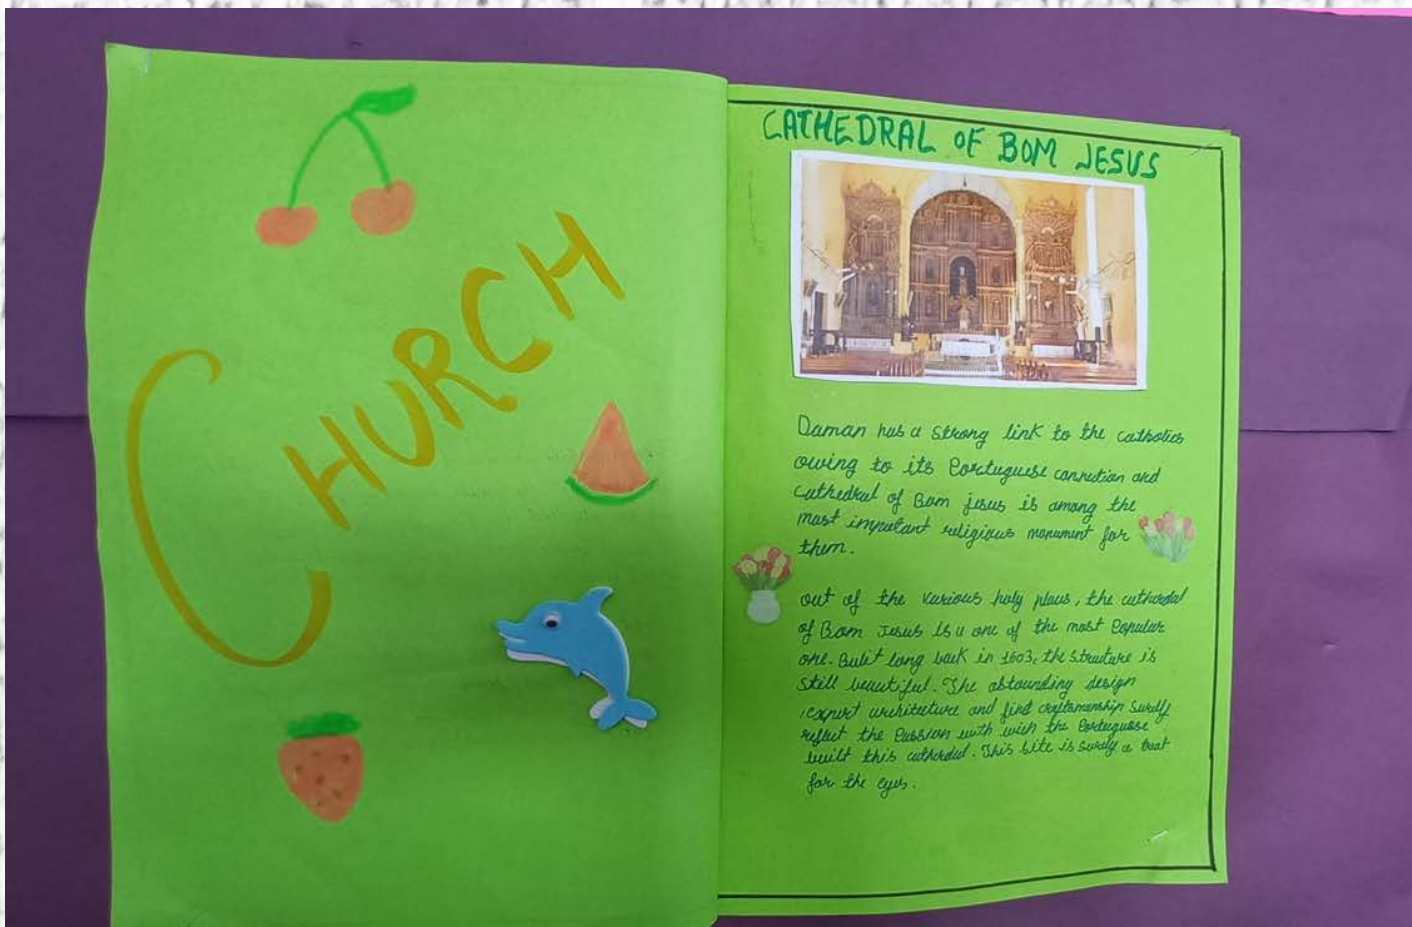 CHURCH
CATHEDRAL OF BOM JESUS
Daman has a strong link to the catholics
owing to its Portuguese connution and
cathedral of Bom jesus is among the
most imputant religious monument for
them.
out of the various holy plaus, the cutherdal
of Bom Jesus is a one of the most Popular
one. Bulit long back in 1603, the structure is
still beautiful. The astounding design
, expert architeture and find craftsmanship surely
reflect the Passion with wich the Portuguese
built this catherdal. This site is surely a treat
for the eyes.